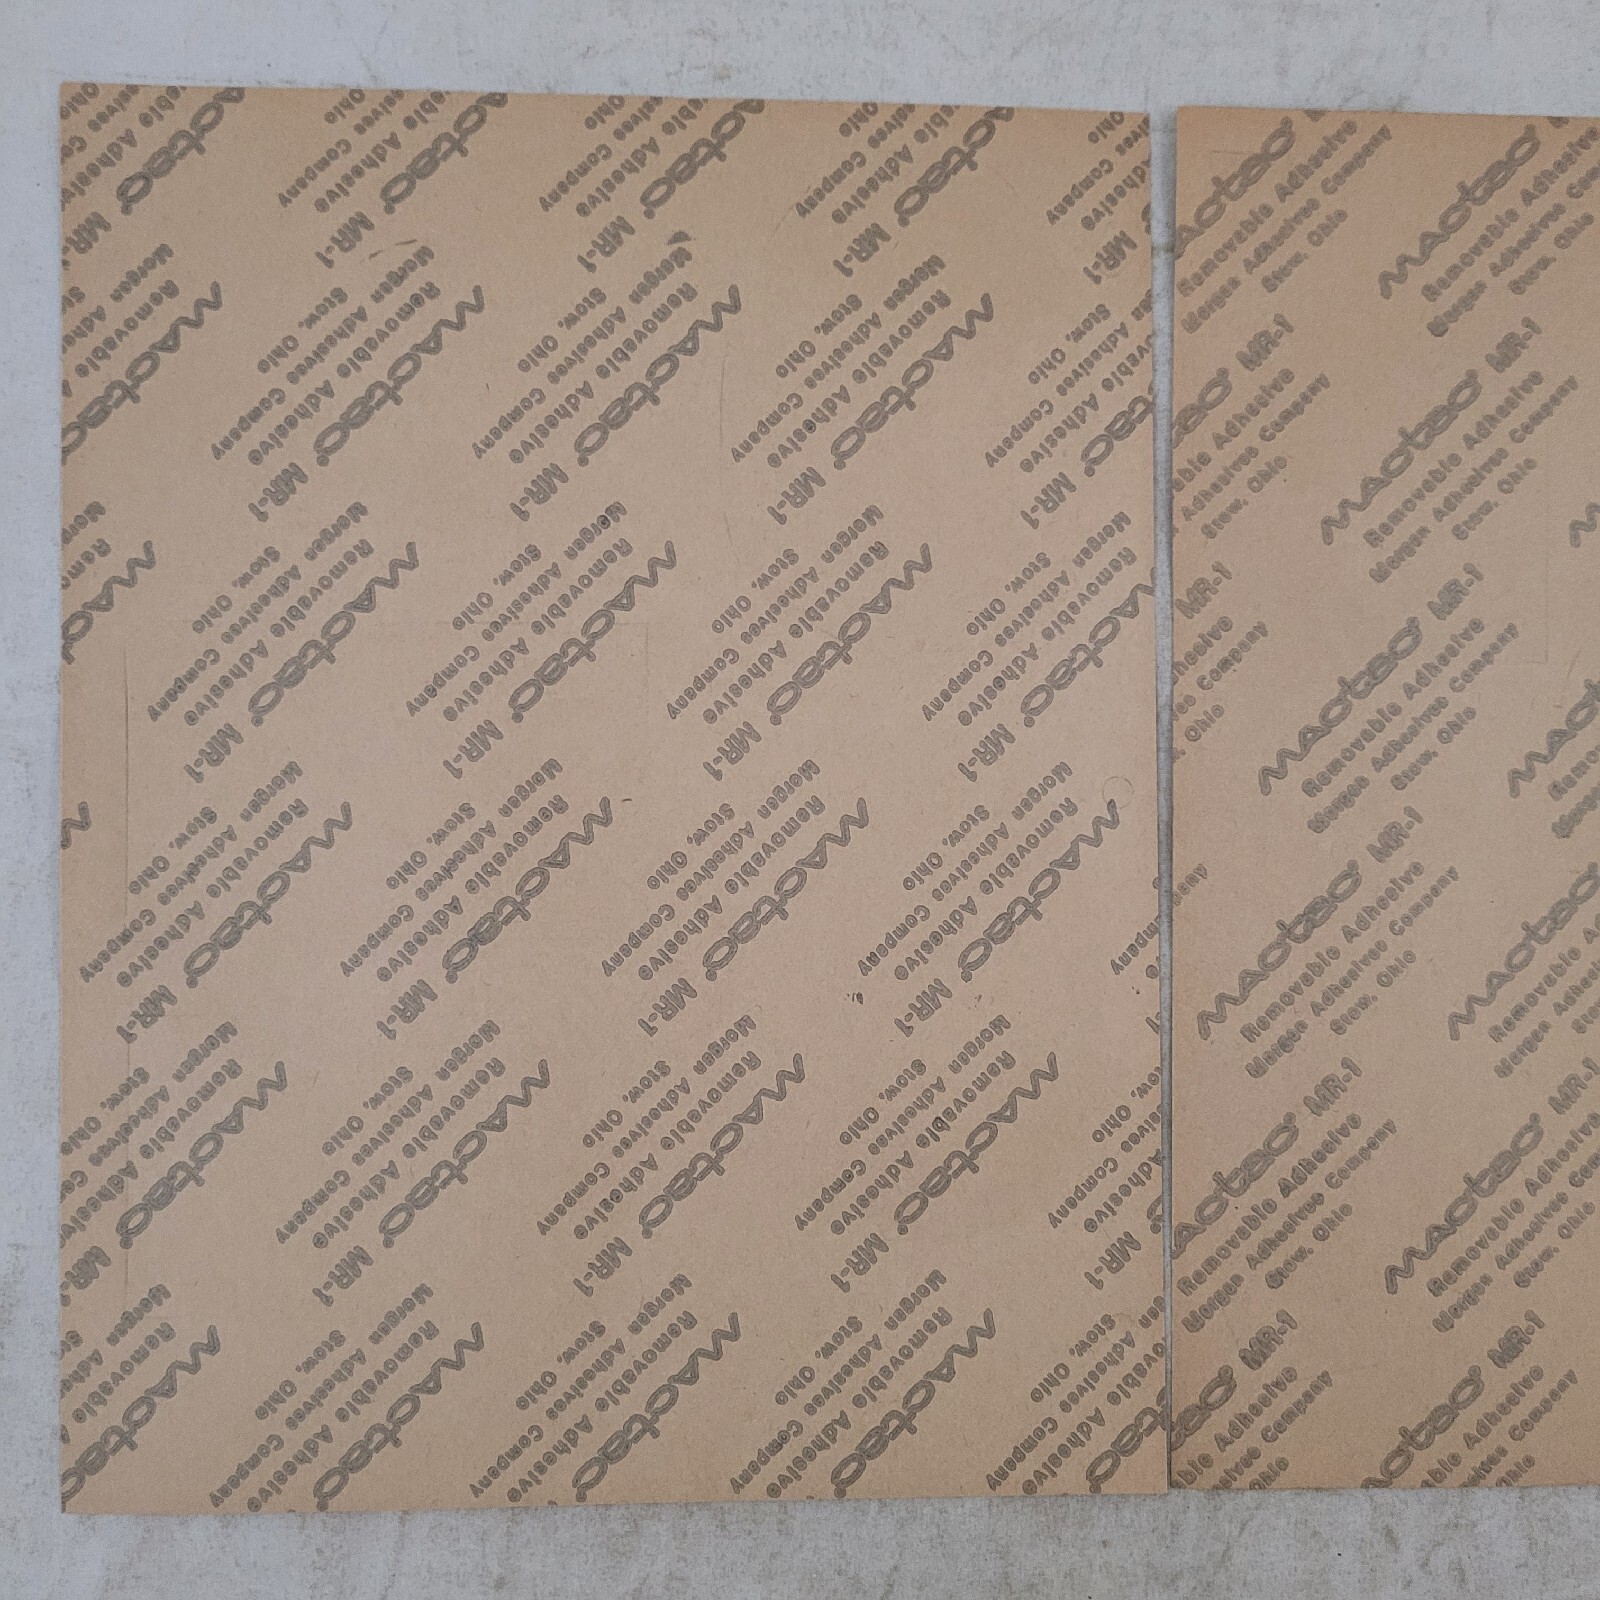 MACtac® MR-1
Removable Adhesive
Morgan Adhesives Company
Stow, Ohio